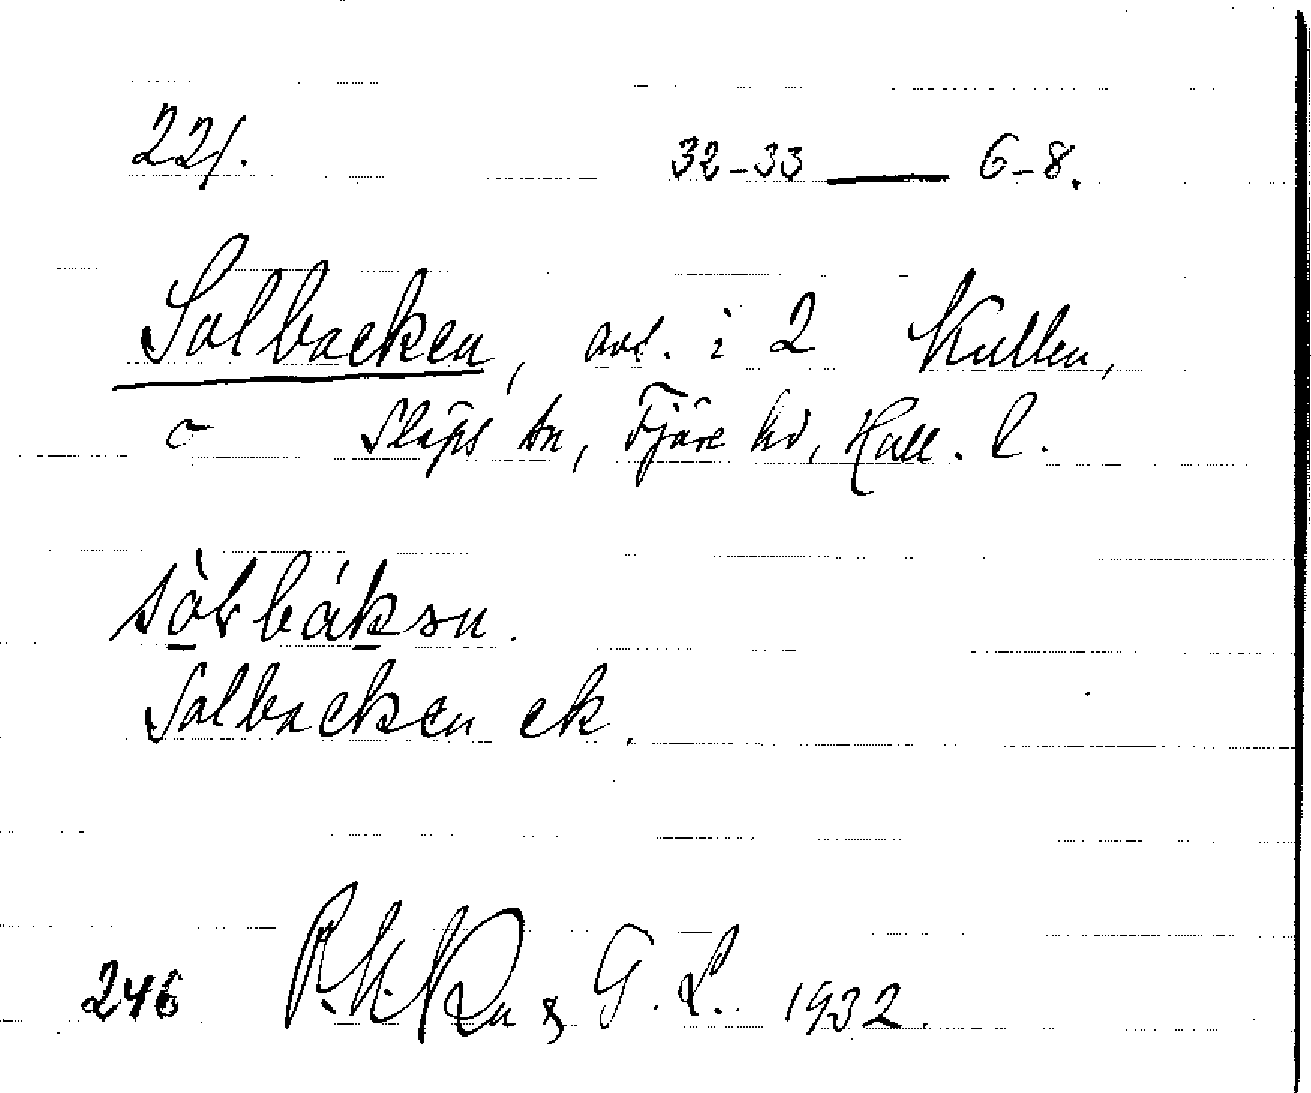 221.
32-33 — 6-8.
Solbacken, avs. i 2 Kullen,
Släps sn, Fjäre hd, Hall. l.
Solbacken ek.
246 & G. L. 1932.